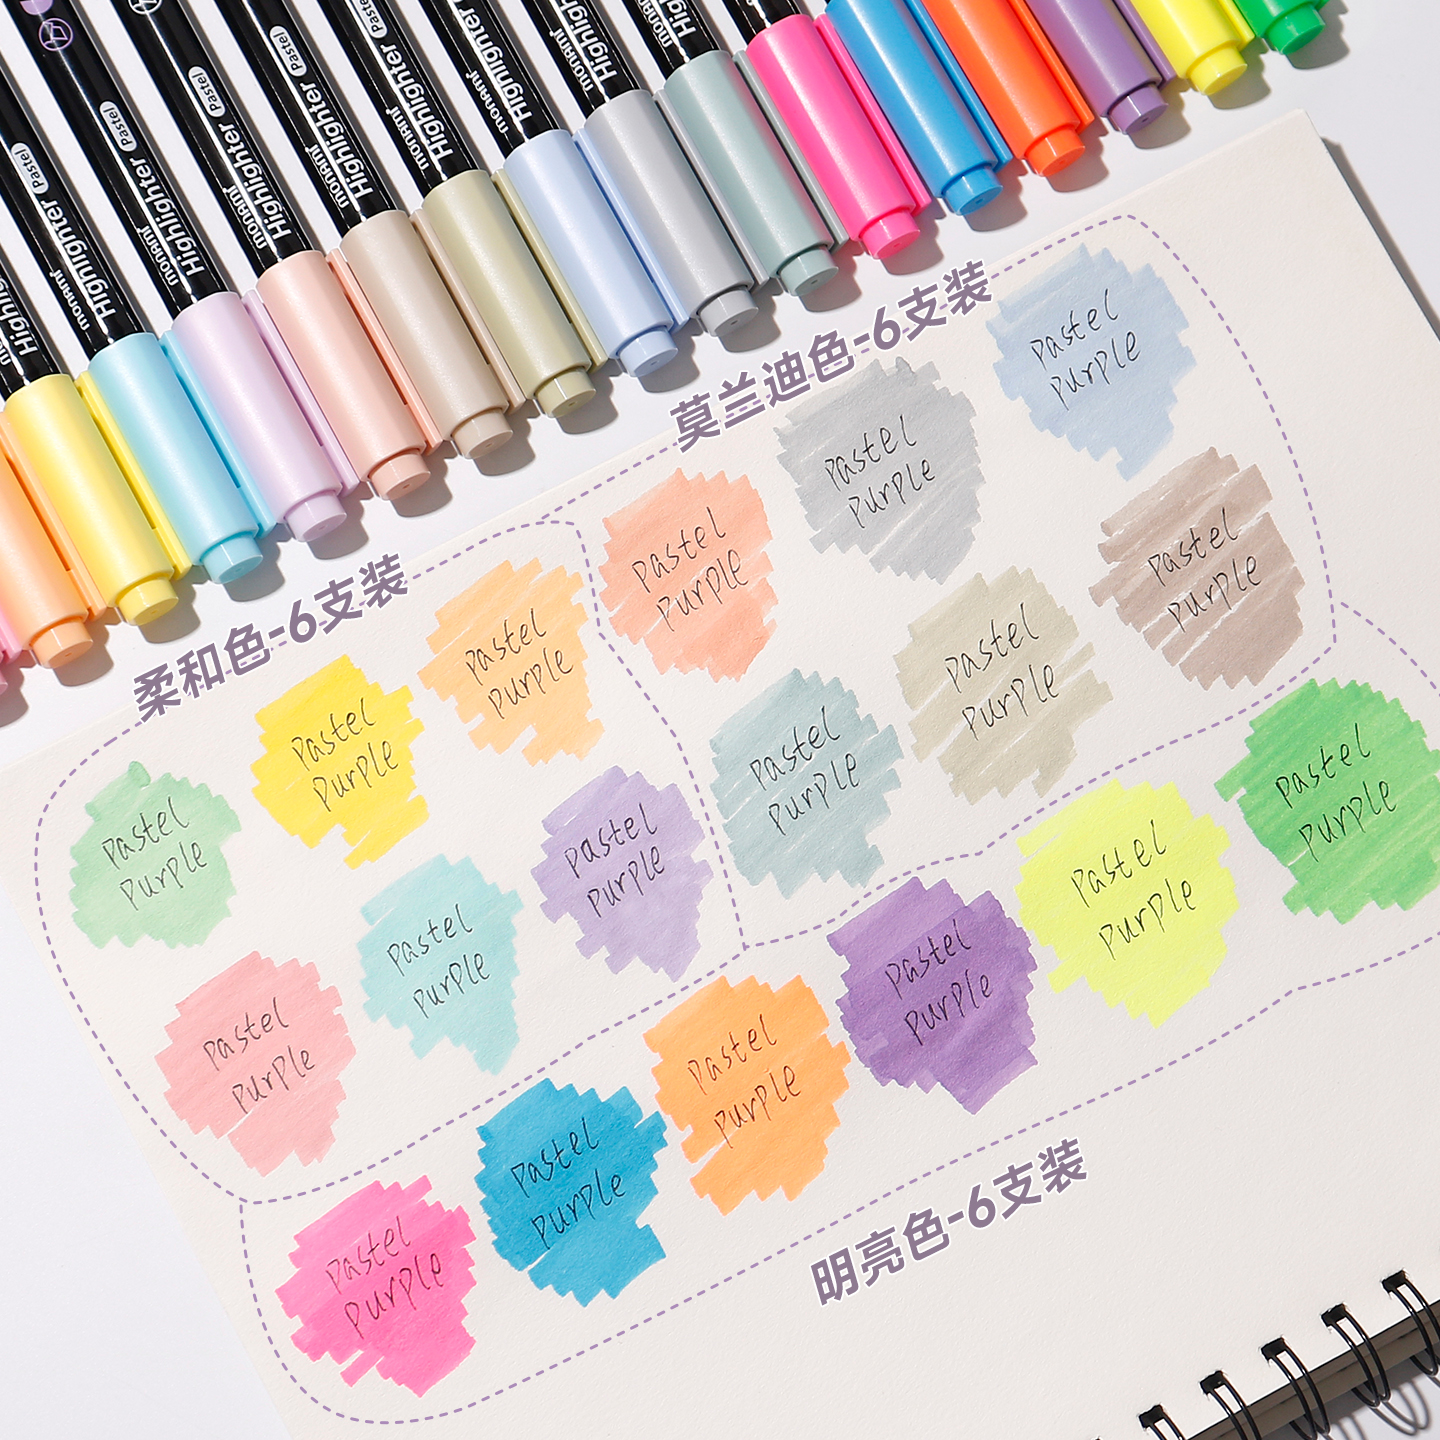 Highlighter Pastel
monami Highlighter Pastel
monami Highlighter Pastel
monami Highlighter Pastel
monami Highlighter Pastel
monami Highlighter
monami Highlighter
Highlighter
Highlighter
莫兰迪色-6支装
柔和色-6支装
明亮色-6支装
Pastel
Purple
Pastel
Purple
Pastel
Purple
Pastel
Purple
Pastel
Purple
Pastel
Purple
Pastel
Purple
Pastel
Purple
Pastel
Purple
Pastel
Purple
Pastel
Purple
Pastel
Purple
Pastel
Purple
Pastel
Purple
Pastel
Purple
Pastel
Purple
Pastel
Purple
Pastel
Purple